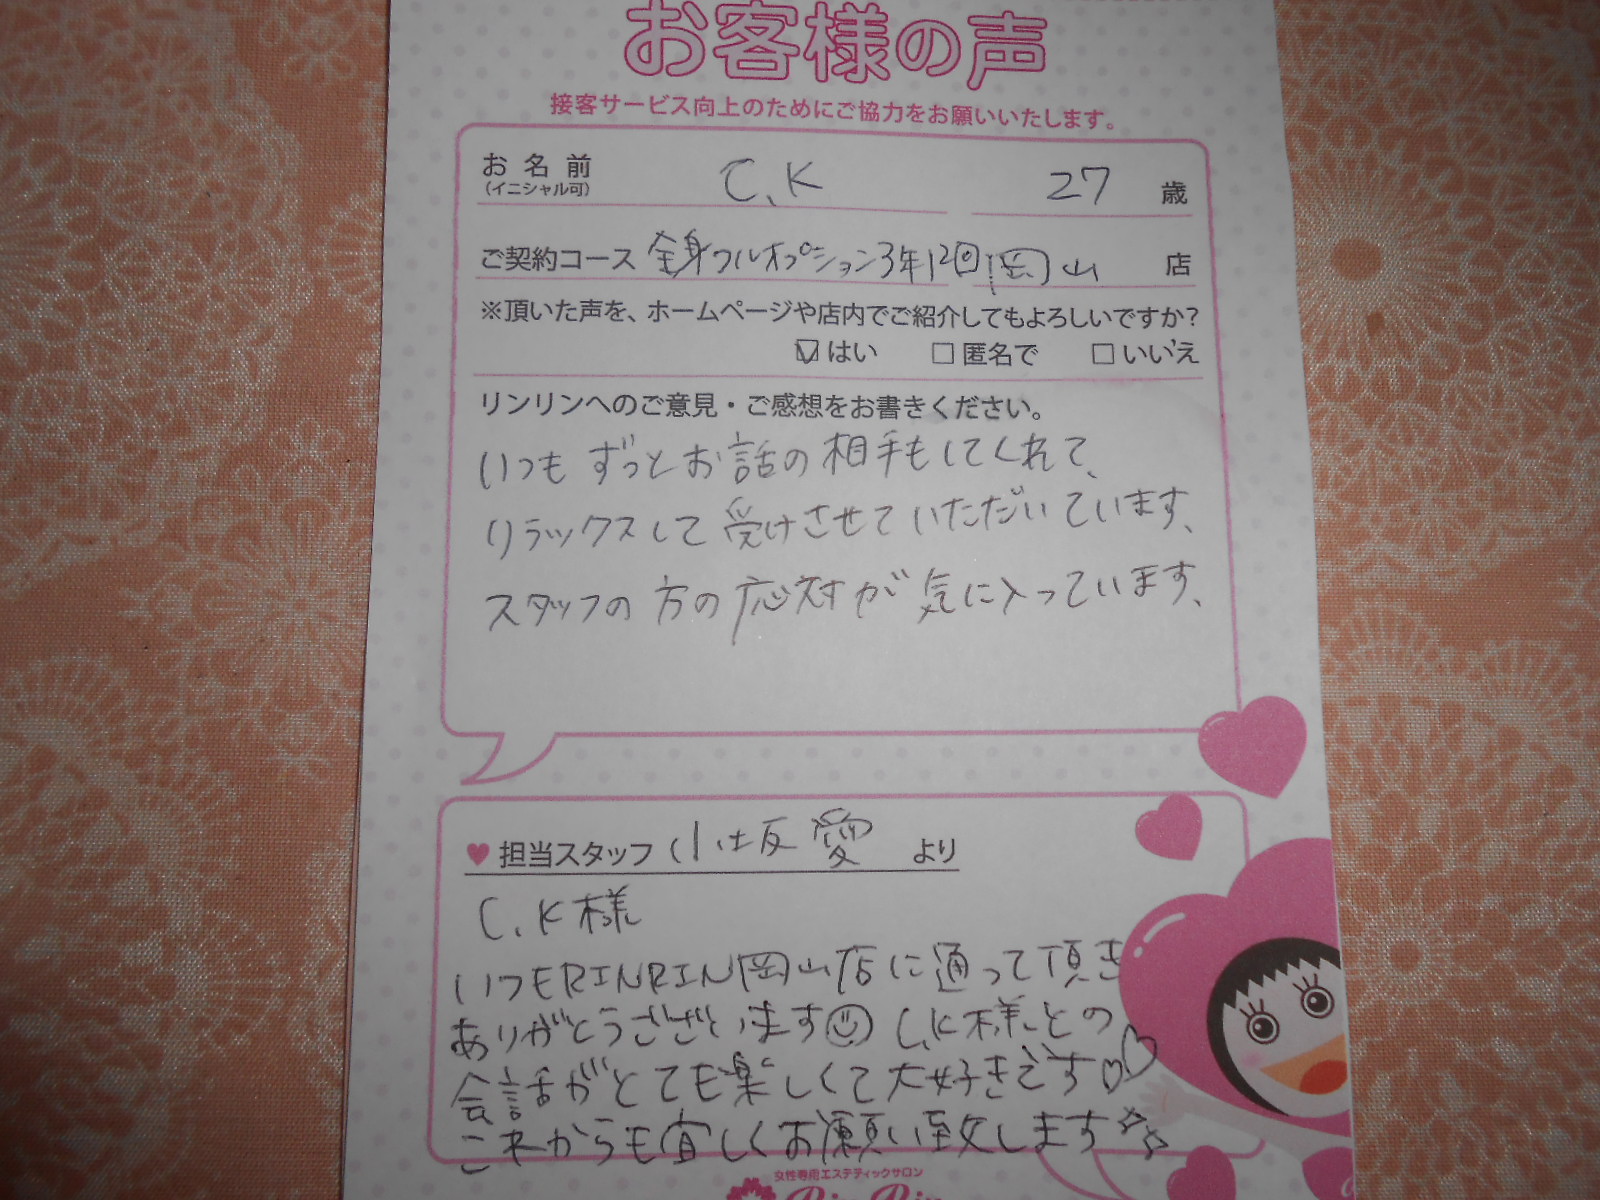 お客様の声
接客サービス向上のためにご協力をお願いいたします。
お名前 C.K 27 歳
(イニシャル可)
ご契約コース 全身フルオプション3年12回 岡山 店
※頂いた声を、ホームページや店内でご紹介してもよろしいですか?
☑はい □匿名で □いいえ
リンリンへのご意見・ご感想をお書きください。
いつもずっとお話の相手もしてくれて、
リラックスして受けさせていただいています、
スタッフの方の応対が気に入っています、
♥担当スタッフ 小坂愛 より
C.K様
いつもRINRIN岡山店に通って頂き
ありがとうございます☺ C.K様との
会話がとても楽しくて大好きです♡♡
これからも宜しくお願い致します☆☆
女性専用エステティックサロン
Rin Rin